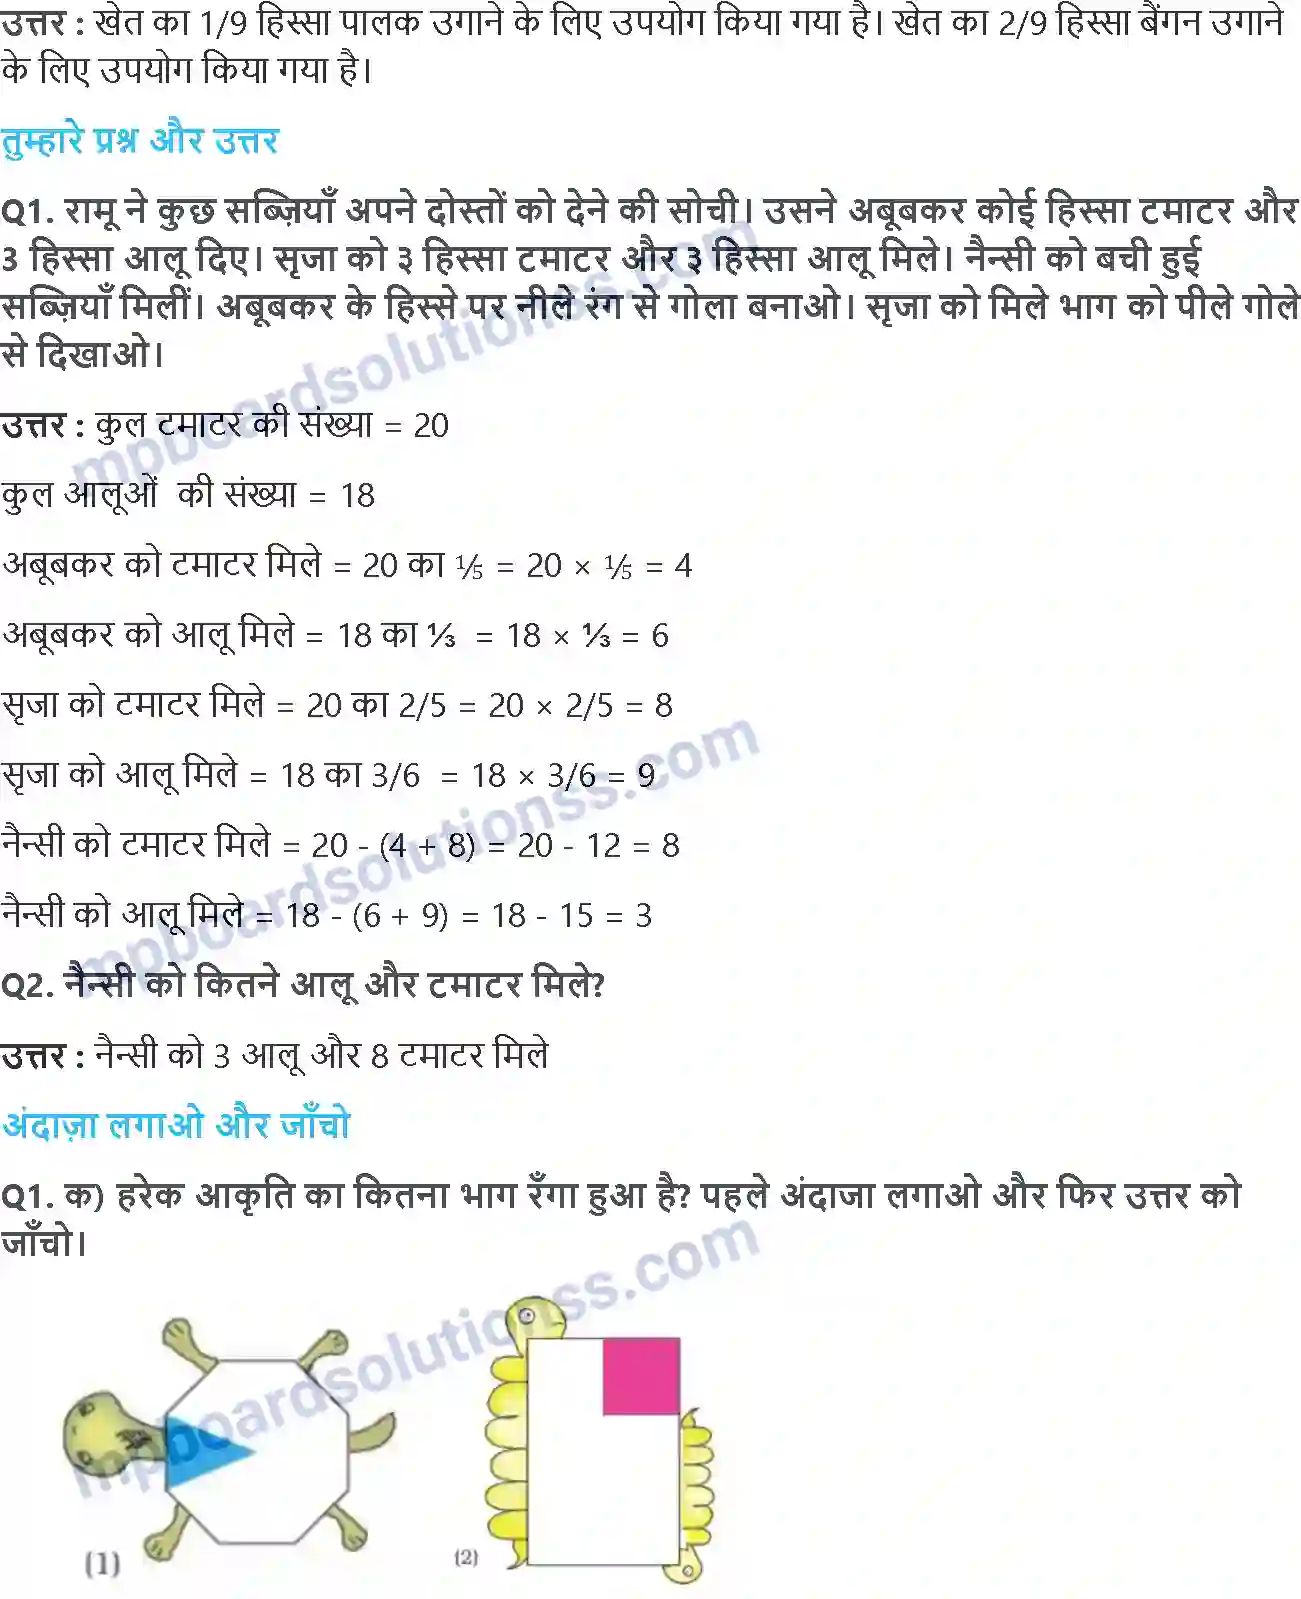 उत्तर : खेत का 1/9 हिस्सा पालक उगाने के लिए उपयोग किया गया है। खेत का 2/9 हिस्सा बैंगन उगाने
के लिए उपयोग किया गया है।
तुम्हारे प्रश्न और उत्तर
Q1. रामू ने कुछ सब्ज़ियाँ अपने दोस्तों को देने की सोची। उसने अबूबकर कोई हिस्सा टमाटर और
3 हिस्सा आलू दिए। सृजा को ३ हिस्सा टमाटर और ३ हिस्सा आलू मिले। नैन्सी को बची हुई
सब्ज़ियाँ मिलीं। अबूबकर के हिस्से पर नीले रंग से गोला बनाओ। सृजा को मिले भाग को पीले गोले
से दिखाओ।
उत्तर : कुल टमाटर की संख्या = 20
कुल आलूओं की संख्या = 18
अबूबकर को टमाटर मिले = 20 का ⅕ = 20 × ⅕ = 4
अबूबकर को आलू मिले = 18 का ⅓ = 18 × ⅓ = 6
सृजा को टमाटर मिले = 20 का 2/5 = 20 × 2/5 = 8
सृजा को आलू मिले = 18 का 3/6 = 18 × 3/6 = 9
नैन्सी को टमाटर मिले = 20 - (4 + 8) = 20 - 12 = 8
नैन्सी को आलू मिले = 18 - (6 + 9) = 18 - 15 = 3
Q2. नैन्सी को कितने आलू और टमाटर मिले?
उत्तर : नैन्सी को 3 आलू और 8 टमाटर मिले
अंदाज़ा लगाओ और जाँचो
Q1. क) हरेक आकृति का कितना भाग रँगा हुआ है? पहले अंदाजा लगाओ और फिर उत्तर को
जाँचो।
(1)
(2)
mpboardsolutionss.com
mpboardsolutionss.com
mpboardsolutionss.com